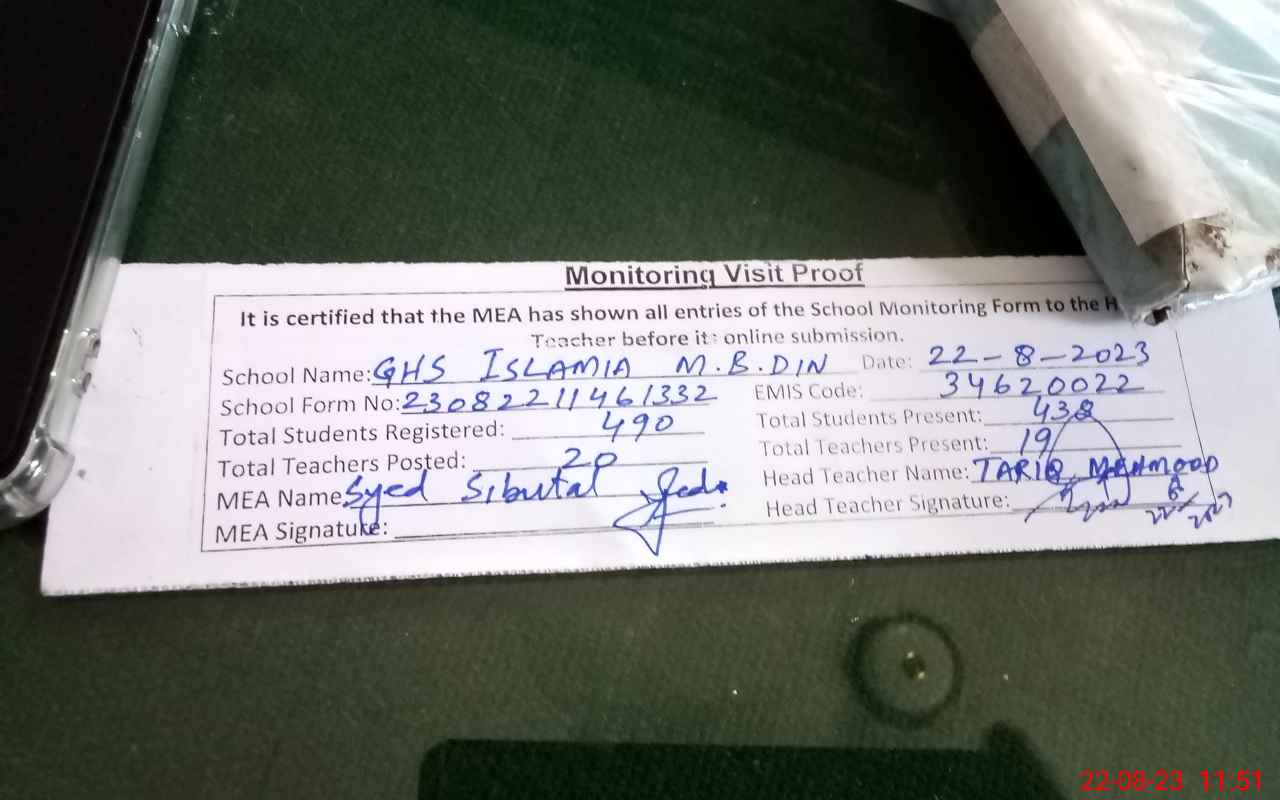 Monitoring Visit Proof
It is certified that the MEA has shown all entries of the School Monitoring Form to the H
Teacher before its online submission.
School Name: GHS ISLAMIA M.B.DIN Date: 22-8-2023
School Form No: 23082211461332 EMIS Code: 34620022
Total Students Registered: 490 Total Students Present: 438
Total Teachers Posted: 20 Total Teachers Present: 19
MEA Name Syed Sibutal Head Teacher Name: TARIQ MEHMOOD
MEA Signature: Head Teacher Signature:
22-08-23 11:51